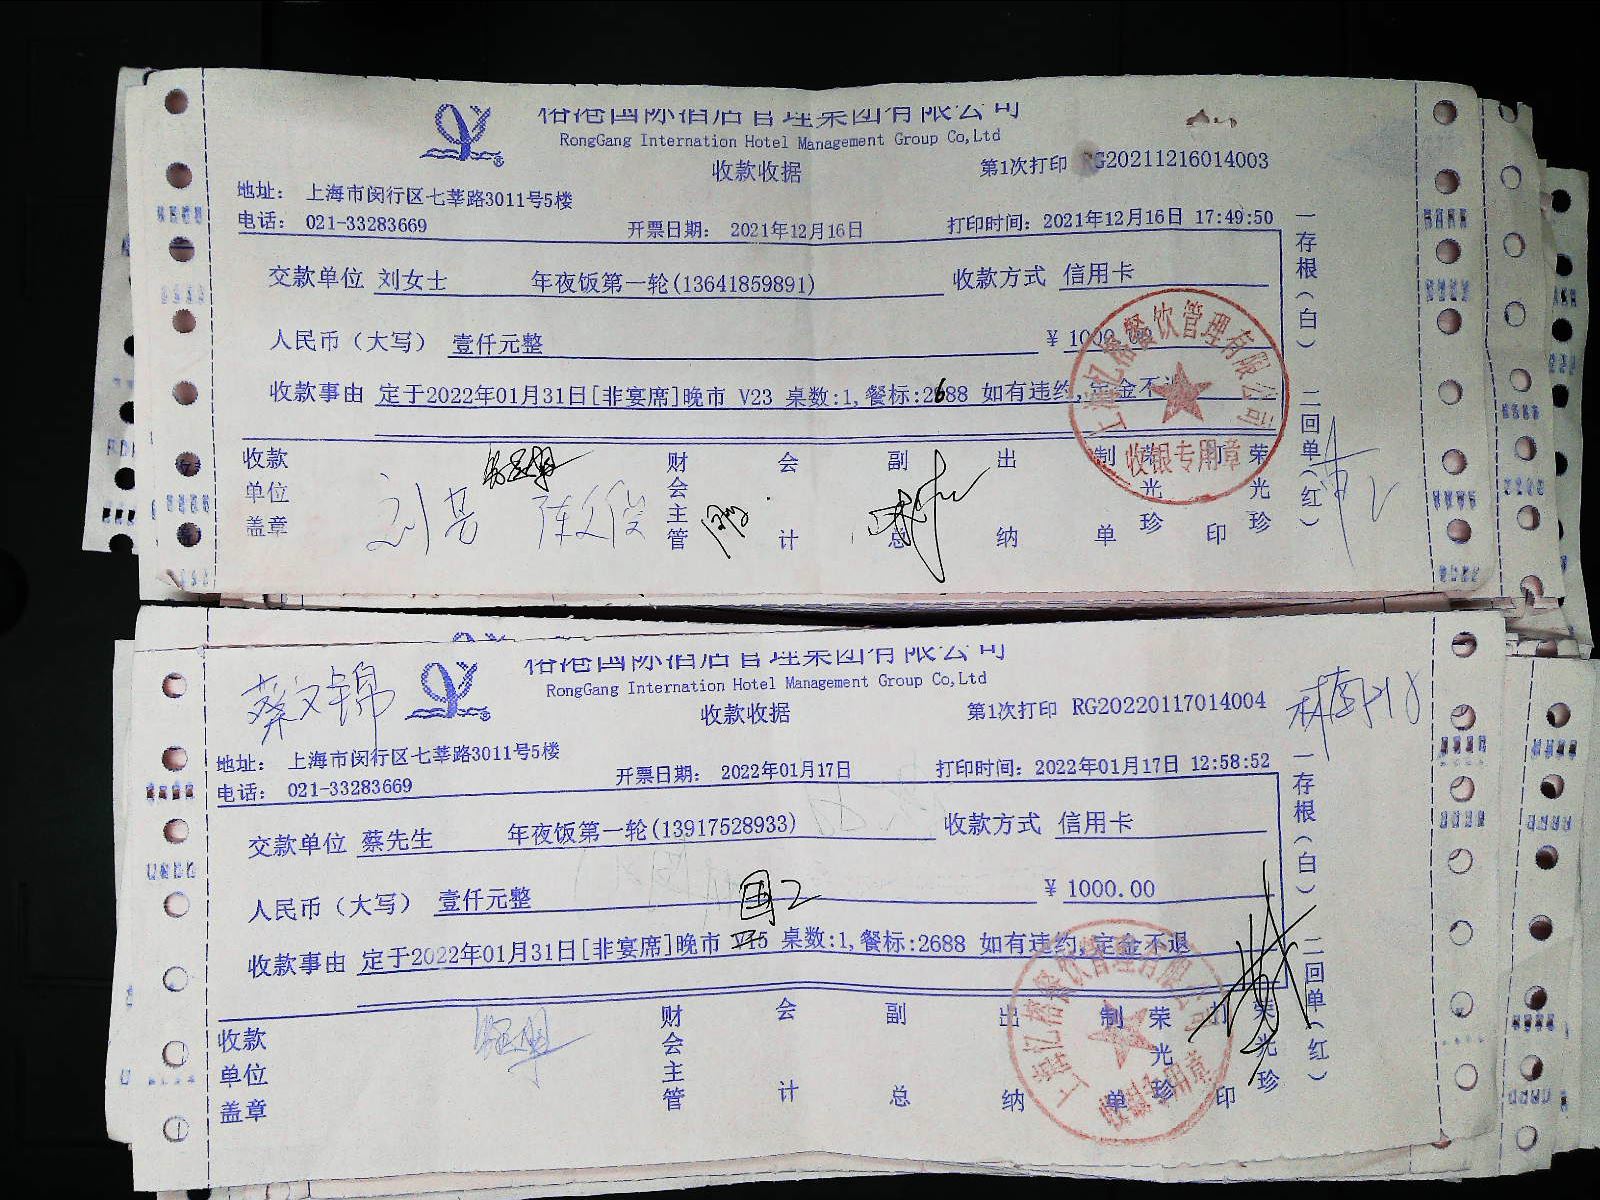 榕港国际酒店管理集团有限公司
RongGang Internation Hotel Management Group Co,Ltd
收款收据
第1次打印 RG20211216014003
地址: 上海市闵行区七莘路3011号5楼
电话: 021-33283669 开票日期: 2021年12月16日 打印时间: 2021年12月16日 17:49:50
交款单位 刘女士 年夜饭第一轮(13641859891) 收款方式 信用卡
人民币（大写） 壹仟元整 ¥ 1000.00
收款事由 定于2022年01月31日[非宴席]晚市 V23 桌数:1,餐标:2688 如有违约,定金不退
收款单位盖章 财会主管 会计 副总 出纳 制单 荣光珍 打印 荣光珍
刘芳
一存根(白) 二回单(红)
上海亿榕餐饮管理有限公司
收银专用章
榕港国际酒店管理集团有限公司
RongGang Internation Hotel Management Group Co,Ltd
蔡文锦
收款收据
第1次打印 RG20220117014004
地址: 上海市闵行区七莘路3011号5楼
电话: 021-33283669 开票日期: 2022年01月17日 打印时间: 2022年01月17日 12:58:52
交款单位 蔡先生 年夜饭第一轮(13917528933) 收款方式 信用卡
人民币（大写） 壹仟元整 ¥ 1000.00
收款事由 定于2022年01月31日[非宴席]晚市 桌数:1,餐标:2688 如有违约,定金不退
收款单位盖章 财会主管 会计 副总 出纳 制单 荣光珍 打印 荣光珍
一存根(白) 二回单(红)
上海亿榕餐饮管理有限公司
收银专用章